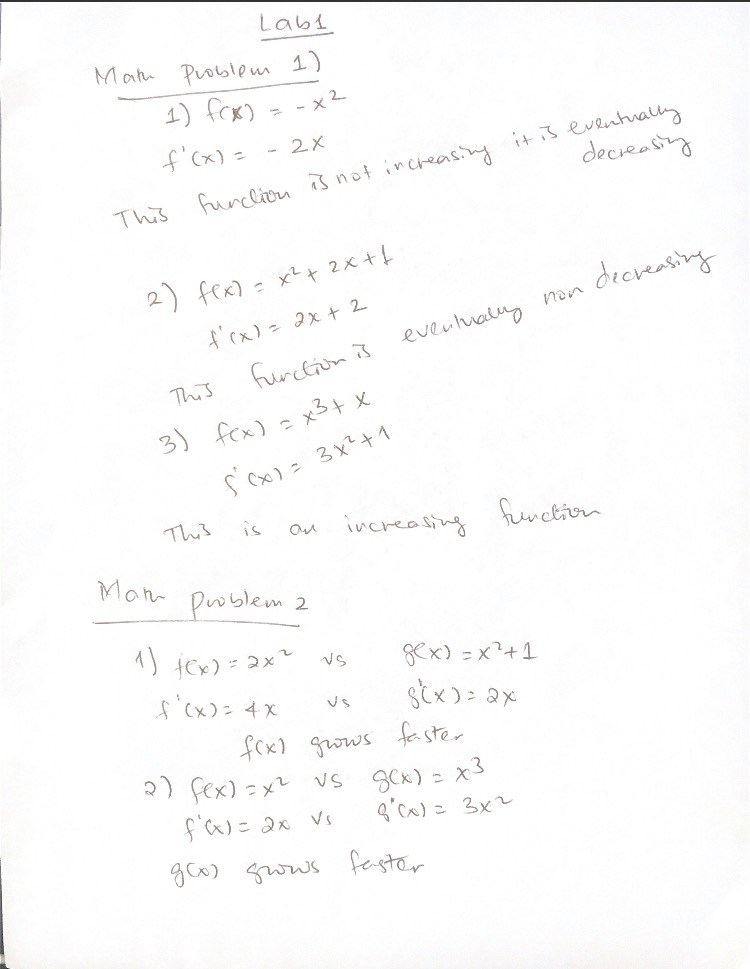 Lab1
Math Problem 1)
1) f(x) = -x²
f'(x) = - 2x
This function is not increasing it is eventually
decreasing
2) f(x) = x² + 2x + 1
f'(x) = 2x + 2
This function is eventually non decreasing
3) f(x) = x³ + x
f'(x) = 3x² + 1
This is an increasing function
Math problem 2
1) f(x) = 2x² vs g(x) = x² + 1
f'(x) = 4x vs g'(x) = 2x
f(x) grows faster
2) f(x) = x² vs g(x) = x³
f'(x) = 2x vs g'(x) = 3x²
g(x) grows faster